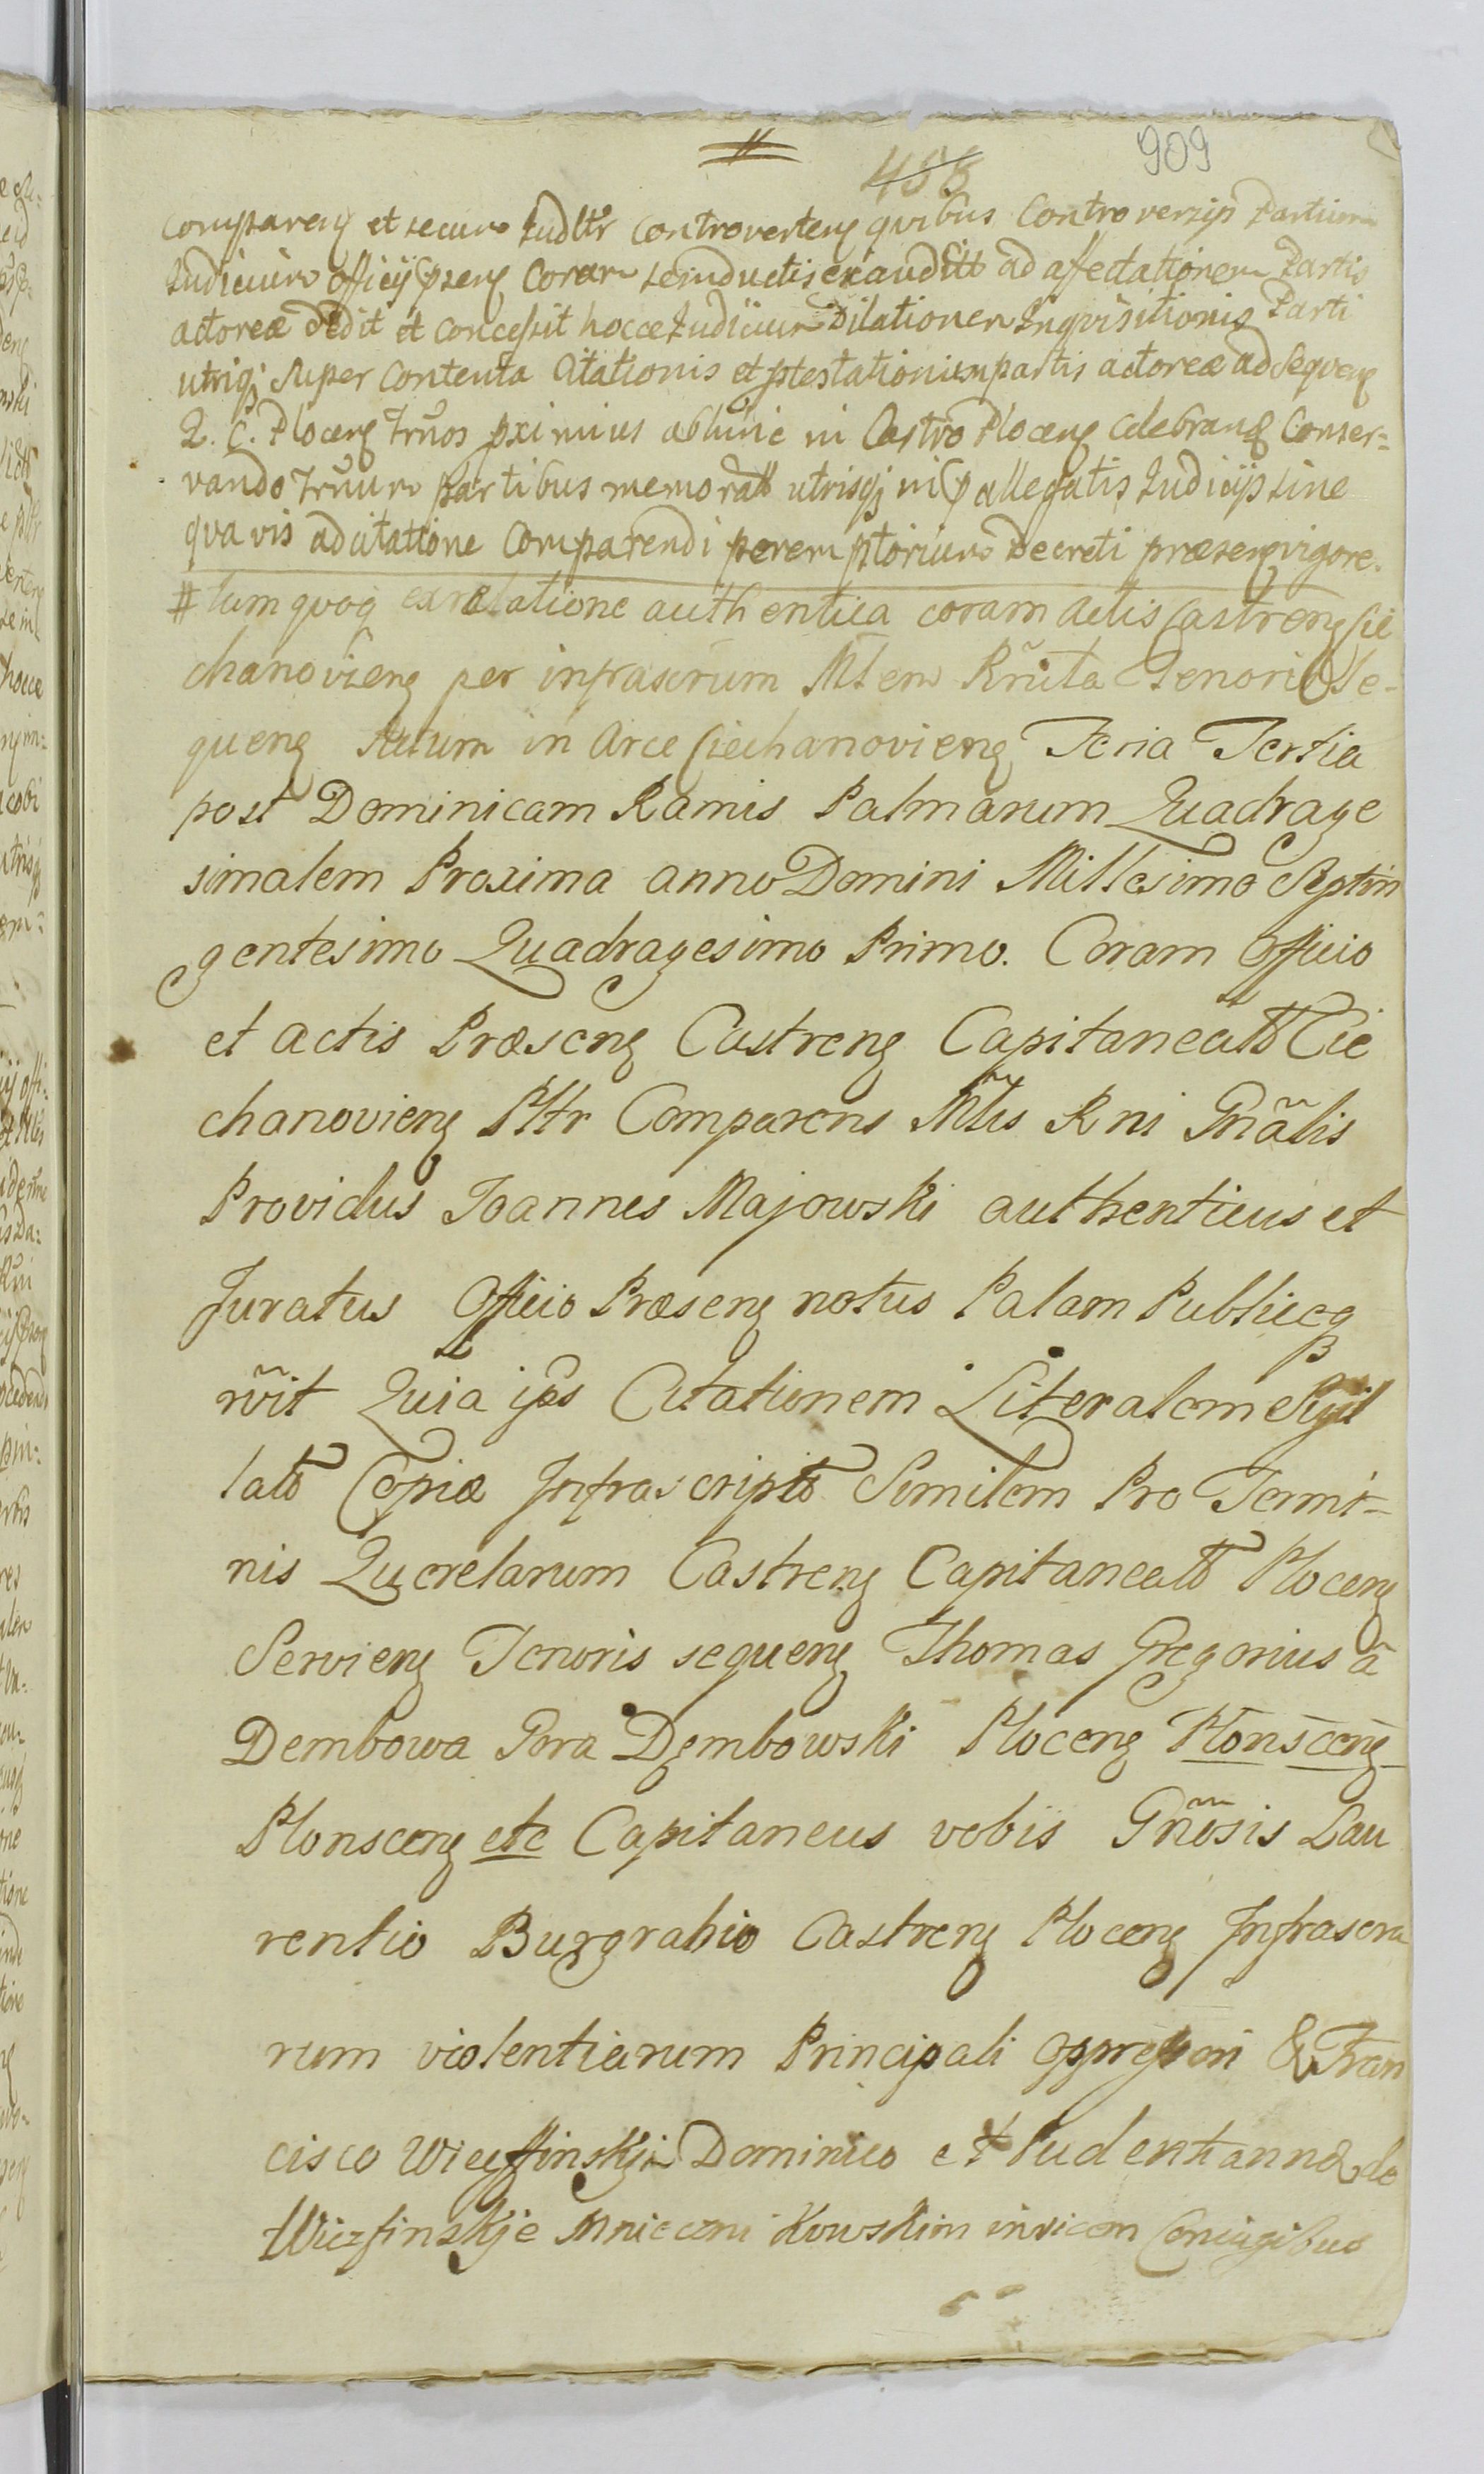 909
458
comparen et secum Judltr controverten quibus Controversys Partium
Judicium officy psen Coram se inductis exauditt ad affectationem Partis
actoreæ dedit et concessit hocce Judicium Dilationem Inqvisitionis Parti
utriqj super contenta Citationis et ptestationum partis actoreæ ad sequen
Q. C. Plocen Trnos pximius abhinc in Castro Plocen celebran Conser=
vando Trnum partibus memoratt utrisqj in p allegatis Judicijs sine
qvavis adcitatione Comparendi peremptorium Decreti præsen vigore.
# tum quoq ex relatione authentica coram actis Castren Cie
chanovien per infrascrum Mtem Rnita Tenoris Se-
quen Actum in Arce Ciechanovien Feria Tertia
post Dominicam Ramis Palmarum Quadrage
simalem Proxima anno Domini Millesimo Septin
gentesimo Quadragesimo Primo. Coram Officio
et actis Præsen Castren Capitaneatt Cie
chanovien Pltr Comparens Mtis Rni Gnãlis
Providus Joannes Majowski authenticus et
Juratus Officio Præsen notus Palam Publiceq
rnit Quia ips Citationem Literalem Sigil
latt Copiæ Infrascriptt Similem Pro Termi-
nis Querelarum Castren Capitaneatt Plocen
Servien Tenoris sequen Thomas Gregorius â
Dembowa Gora Dembowski Plocen Plonscen
Plonscen etc Capitaneus vobis Gnõsis Lau
rentio Burgrabio Castren Plocen Infrascru
rum violentiarum Principali oppressori & Fran
cisco Dominico et Pudentianna de
invicem Coniugibus